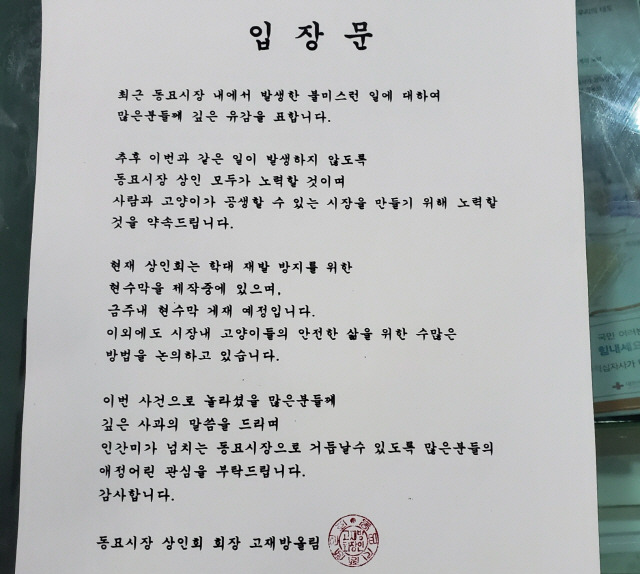 입 장 문
최근 동묘시장 내에서 발생한 불미스런 일에 대하여
많은분들께 깊은 유감을 표합니다.
추후 이번과 같은 일이 발생하지 않도록
동묘시장 상인 모두가 노력할 것이며
사람과 고양이가 공생할 수 있는 시장을 만들기 위해 노력할
것을 약속드립니다.
현재 상인회는 학대 재발 방지를 위한
현수막을 제작중에 있으며,
금주내 현수막 게재 예정입니다.
이외에도 시장내 고양이들의 안전한 삶을 위한 수많은
방법을 논의하고 있습니다.
이번 사건으로 놀라셨을 많은분들께
깊은 사과의 말씀을 드리며
인간미가 넘치는 동묘시장으로 거듭날수 있도록 많은분들의
애정어린 관심을 부탁드립니다.
감사합니다.
동묘시장 상인회 회장 고재방올림
고재방
회장인
국민 여러분
힘내세요